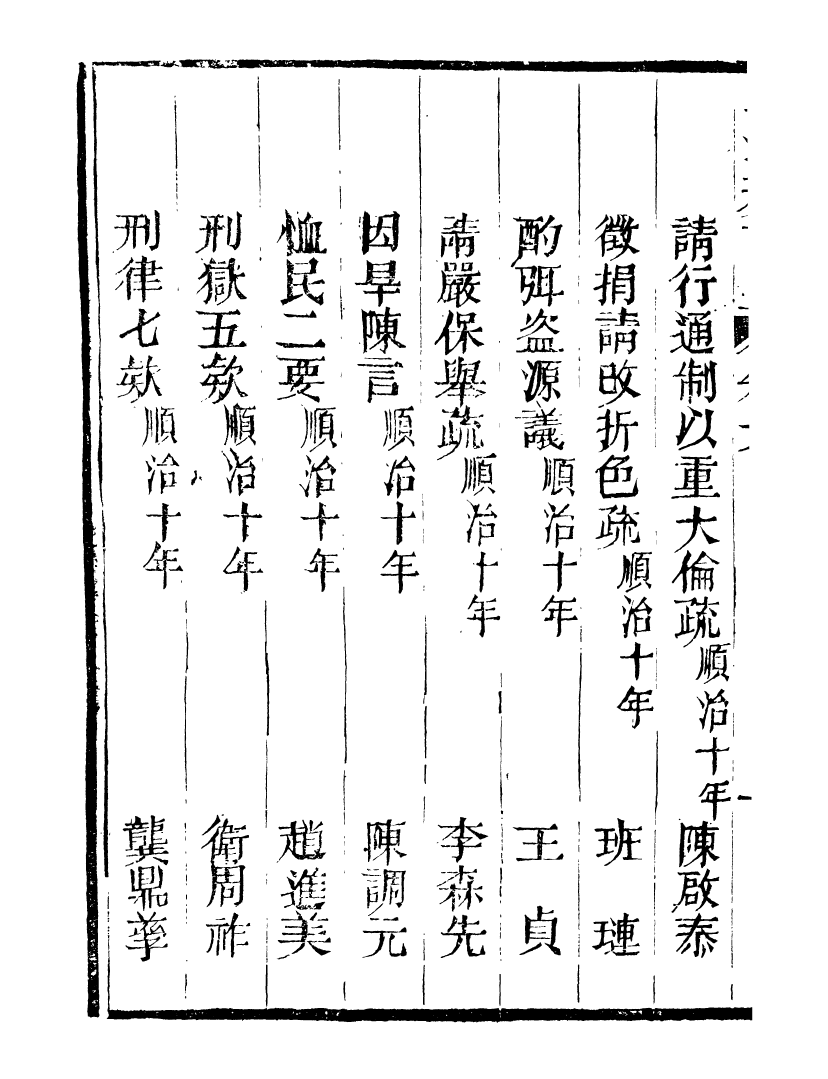 請行通制以重大倫疏順治十年 陳啟泰
徵捐請改折色疏順治十年 班璉
酌弭盜源議順治十年 王貞
請嚴保舉疏順治十年 李森先
因旱陳言順治十年 陳調元
恤民二要順治十年 趙進美
刑獄五欵順治十年 衛周祚
刑律七欵順治十年 龔鼎孳